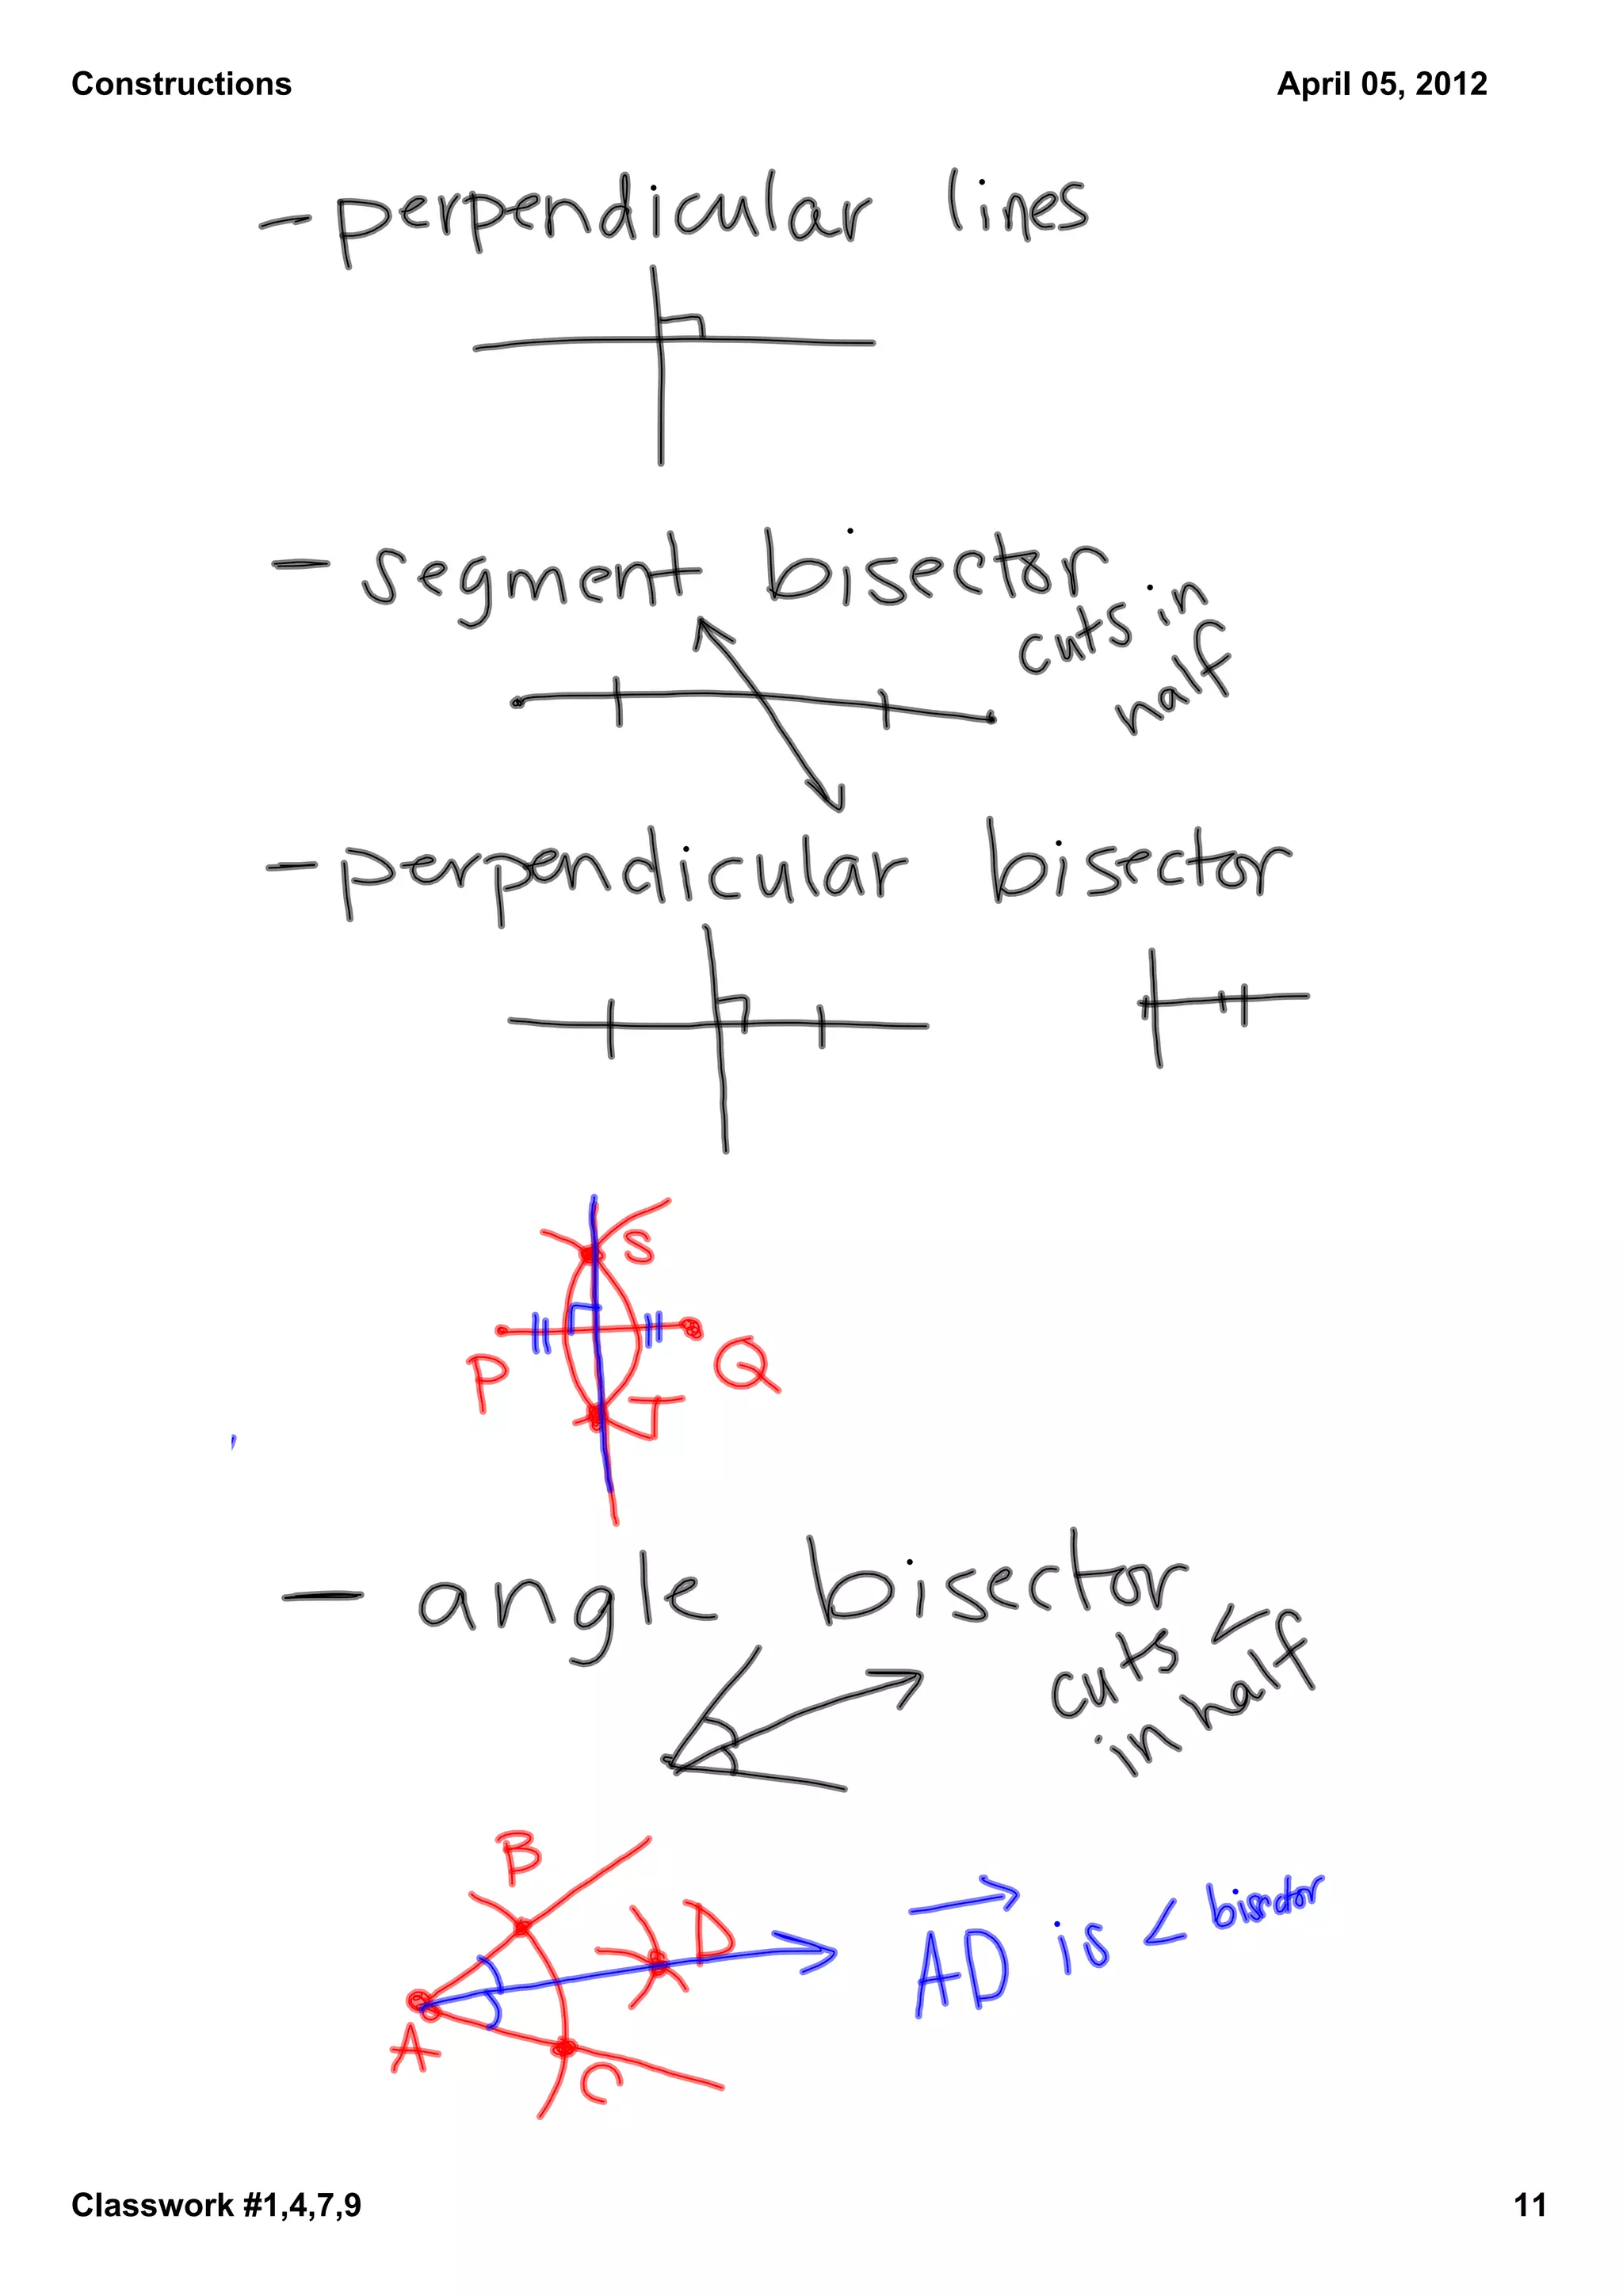 Constructions April 05, 2012
- perpendicular lines
- segment bisector
cuts in
half
- perpendicular bisector
S
P Q
T
- angle bisector
cuts <
in half
B
D
A
C
AD is < bisector
Classwork #1,4,7,9 11